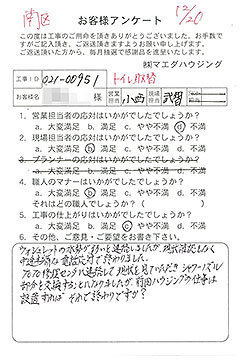 南区
12/20
お客様アンケート
この度は工事のご用命を頂きありがとうございました。お手数で
すがご記入頂き、ご返送頂きますようお願い申し上げます。
ご返送頂いた方から、毎月抽選で感謝品を進呈いたします。
㈱マエダハウジング
工事ID 021-00951 トイレ取替
お客様名 様 営業担当 小西 現場担当 武智
1. 営業担当者の応対はいかがでしたでしょうか?
a. 大変満足 b. 満足 c. やや不満 d. 不満
2. 現場担当者の応対はいかがでしたでしょうか?
a. 大変満足 b. 満足 c. やや不満 d. 不満
3. プランナーの応対はいかがでしたでしょうか?
a. 大変満足 b. 満足 c. やや不満 d. 不満
4. 職人のマナーはいかがでしたでしょうか?
a. 大変満足 b. 満足 c. やや不満 d. 不満
それはどの職人でしょうか? ( )
5. 工事の仕上がりはいかがでしたでしょうか?
a. 大変満足 b. 満足 c. やや不満 d. 不満
6. その他、ご意見・ご要望をお書き下さい。
ウォシュレットの水勢が弱いと連絡しましたが、現状確認もなく
電話応対で終わりました。
修理センターに連絡して現状を見ていただき シャワーノズル
部分を交換することになりましたが、前田ハウジングの仕事は
設置すれば それで終わりですか?